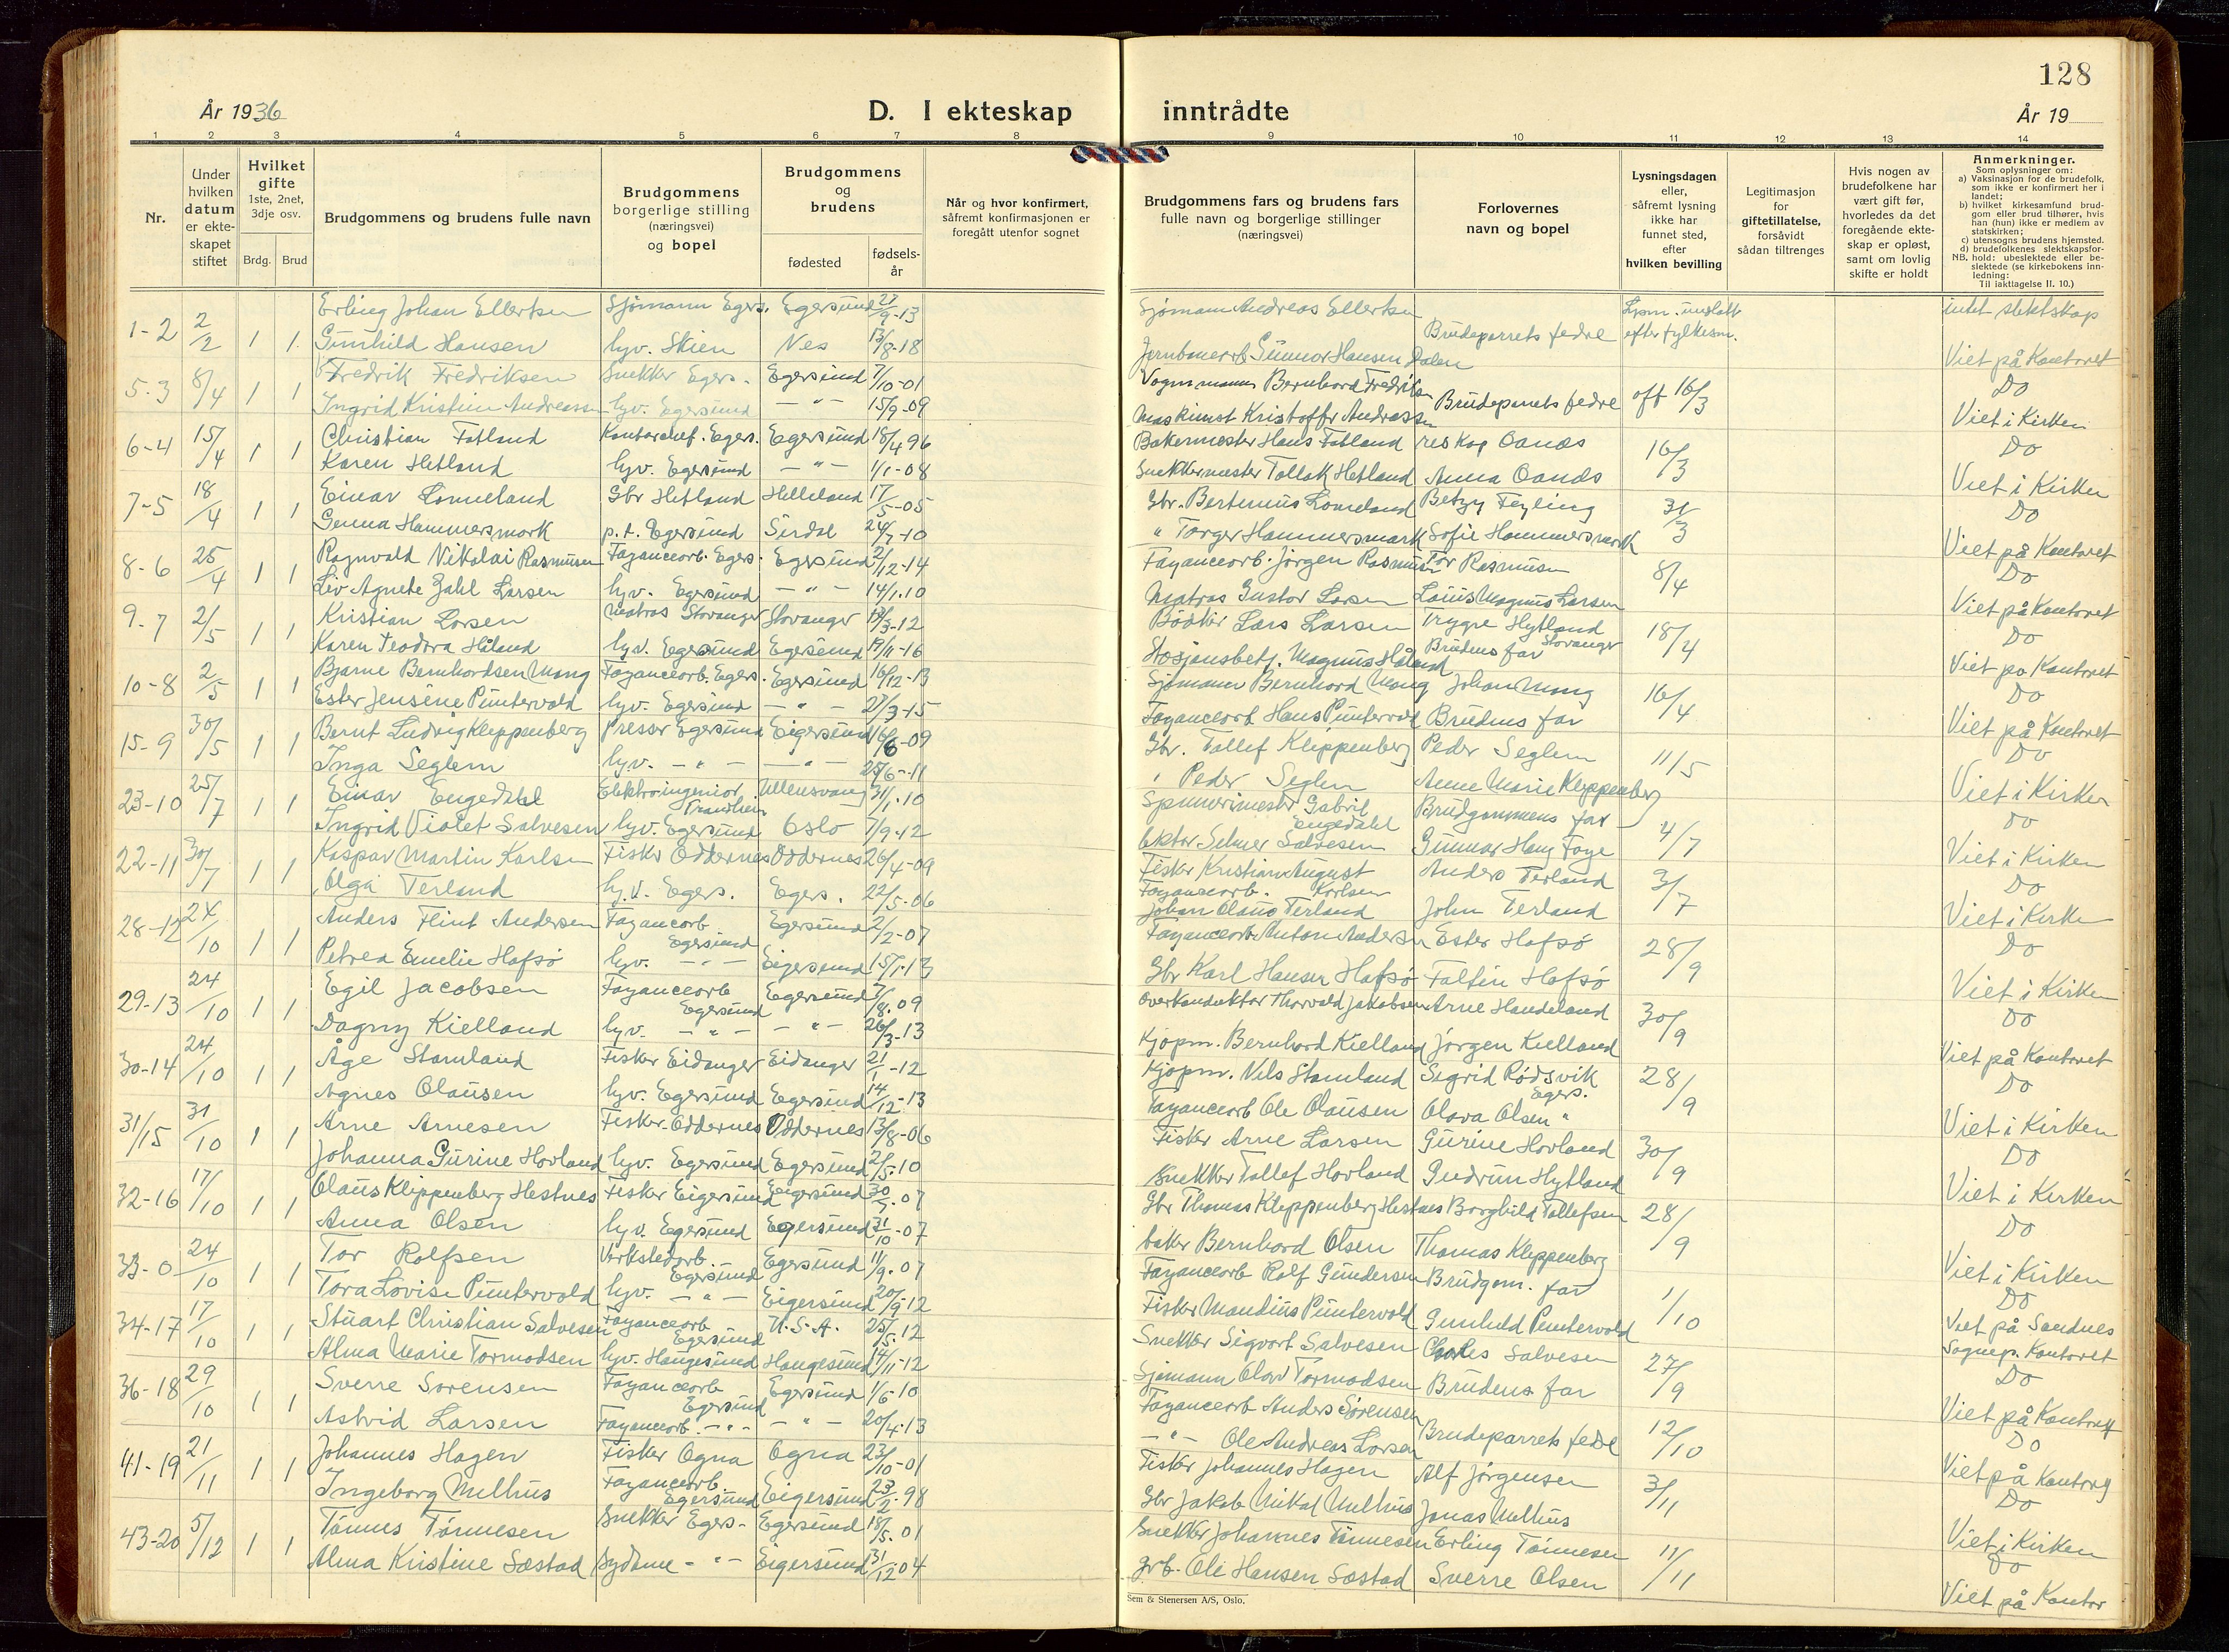 128
År 1936
D. I ekteskap inntrådte
År 19
1 2 3 4 5 6 7 8 9 10 11 12 13 14
Nr.
Under hvilken datum er ekte-skapet stiftet
Hvilket gifte 1ste, 2net, 3dje osv.
Brdg. Brud
Brudgommens og brudens fulle navn
Brudgommens borgerlige stilling (næringsvei) og bopel
Brudgommens og brudens
fødested
fødsels-år
Når og hvor konfirmert, såfremt konfirmasjonen er foregått utenfor sognet
Brudgommens fars og brudens fars fulle navn og borgerlige stillinger (næringsvei)
Forlovernes navn og bopel
Lysningsdagen eller, såfremt lysning ikke har funnet sted, efter hvilken bevilling
Legitimasjon for giftetillatelse, forsåvidt sådan tiltrenges
Hvis nogen av brudefolkene har vært gift før, hvorledes da det foregående ekte-skap er opløst, samt om lovlig skifte er holdt
Anmerkninger.
Som oplysning om:
a) Vaksinasjon for de brudefolk, som ikke er konfirmert her i landet;
b) hvilket kirkesamfund brud-gom eller brud tilhører, hvis han (hun) ikke er medlem av statskirken;
c) utensogns brudens hjemsted.
d) brudefolkenes slektskapsfor-
NB. hold: ubeslektede eller be-slektede (se kirkebokens inn-ledning:
Til iakttagelse II. 10.)
1-2 2/2 1 1 Erling Johan Ellertsen Sjømann Egers. Egersund 27/9-13 Sjømann Andreas Ellertsen Brudeparrets fedre efter fylkesm. intet slektskap
Gunhild Hansen hyv. Skien Nes 13/8-18 Jernbanearb Gunnar Hansen Dalen Viet på Kontoret
5-3 8/4 1 1 Fredrik Fredriksen Snekker Egers. Egersund 7/10-01 Vognmann Bernhard Fredriksen Brudeparrets fedre off 16/3 Do
Ingrid Kristine Andreassen hyv. Egersund -"- 15/9-09 Maskinist Kristoffer Andreassen Viet i Kirken
6-4 15/4 1 1 Christian Fotland Kontorchef. Egers. Egersund 18/4 96 Bakermester Hans Fotland res kap Oands 16/3 Do
Karen Hetland hyv. Egersund -"- 1/1-08 Snekkermester Tollak Hetland Anna Oands Viet i Kirken
7-5 18/4 1 1 Einar Lomeland Gbr Hetland Helleland 17/5-05 Gbr. Bertinius Lomeland Betzy Feyling 31/3 Do
Genna Hammersmark p.t. Egersund Sirdal 24/7-10 " Torger Hammersmark Sofie Hammersmark Viet på Kontoret
8-6 25/4 1 1 Ragnvald Nikolai Rasmusen Fayancearb. Egers. Egersund 2/12-14 Fayancearb. Jørgen Rasmusen Tor Rasmusen 8/4 Do
Liv Agnete Zahl Larsen hyv. Egersund -"- 14/1.10 Matros Gustav Larsen Louis Magnus Larsen Viet på Kontoret
9-7 2/5 1 1 Kristian Larsen Matros Stavanger Stavanger 19/3-12 Bødker Lars Larsen Trygve Hytland Stavanger 18/4 Do
Karen Teodora Håland hyv. Egersund Egersund 19/11-16 Stasjonsbetj. Magnus Håland Brudens far Viet på Kontoret
10-8 2/5 1 1 Bjarne Bernhardsen Mong Fayancearb. Egers. Egersund 16/12-13 Sjømann Bernhard Mong Johan Mong 16/4 Do
Ester Jensine Puntervold hyv. Egersund -"- 27/3-15 Fayancearb Hans Puntervold Brudens far Viet på Kontoret
15-9 30/5 1 1 Bernt Ludvig Kleppenberg Presser Egersund Eigersund 16/6-09 Gbr. Tollef Kleppenberg Peder Seglem 11/5 Do
Inga Seglem hyv. -"- -"- 25/6-11 " Peder Seglem Anne Marie Kleppenberg Viet i Kirken
23-10 25/7 1 1 Einar Engedahl Elektroingeniør Trondheim Ullensvang 31/1.10 Spinnerimester Gabriel Engedahl Brudgommens far 4/7 Do
Ingrid Violet Salvesen hyv. Egersund Oslo 7/9-12 Aktor Selmer Salvesen Gunnar Haug Faye Viet i Kirken
22-11 30/7 1 1 Kaspar Martin Karlsen Fisker Oddernes Oddernes 26/4-09 Fisker Kristian August Karlsen Anders Terland 3/7 Do
Olga Terland hyv. Egers. Egers. 22/5-06 Fayancearb. Johan Olaus Terland John Terland Viet i Kirken
28-12 24/10 1 1 Anders Flint Andersen Fayancearb Egersund Egersund 2/2-07 Fayancearb Anton Andersen Ester Hafsø 28/9 Do
Petrea Emelie Hafsø hyv. -"- Eigersund 15/1.13 Gbr Karl Hansen Hafsø Faltin Hafsø Viet i Kirken
29-13 24/10 1 1 Egil Jacobsen Fayancearb Egersund Egersund 7/8.09 Overkonduktør Thorvald Jakobsen Arne Handeland 30/9 Do
Dagny Kielland hyv. -"- -"- 26/3-13 Kjøpm. Bernhard Kielland Jørgen Kielland Viet på Kontoret
30-14 24/10 1 1 Åge Stamland Fisker Eidanger Eidanger 21/1-12 Kjøpm. Nils Stamland Sigrid Rødsvik Egers. 28/9 Do
Agnes Olausen hyv. Egersund Egersund 14/12-13 Fayancearb Ole Olausen Olava Olsen " Viet i Kirken
31/15 31/10 1 1 Arne Arnesen Fisker-Oddernes Oddernes 13/8-06 Fisker Arne Larsen Gurine Hovland 30/9 Do
Johanna Gurine Hovland hyv. Egersund Egersund 2/5.10 Snekker Tollef Hovland Gudrun Hytland Viet i Kirken
32-16 17/10 1 1 Olaus Klippenberg Hestnes Fisker Eigersund Eigersund 30/7-07 Gbr Thomas Kleppenberg Hestnes Borghild Tollefsen 28/9 Do
Anna Olsen hyv. Egersund Egersund 31/10-07 baker Bernhard Olsen Thomas Kleppenberg Viet i Kirken
33-0 24/10 1 1 Tor Rolfsen Verkstedarb. Egersund Egersund 11/9.07 Fayancearb Rolf Gundersen Brudgom. far 1/10 Do
Tora Lovise Puntervold hyv. -"- Eigersund 20/9-12 Fisker Mandius Puntervold Gunhild Puntervold Viet på Sandnes
34-17 17/10 1 1 Stuart Christian Salvesen Fayancearb Egersund U.S.A. 25/5.12 Snekker Sigvart Salvesen Charles Salvesen 27/9 Sognep. Kontoret
Alma Marie Tormodsen hyv. Haugesund Haugesund 14/11-12 Sjømann Olav Tormodsen Brudens far Do
36-18 29/10 1 1 Sverre Sørensen Fayancearb Egersund Egersund 1/6-10 Fayancearb Anders Sørensen Brudeparrets fedre 12/10 Viet på Kontoret
Astrid Larsen Fayancearb. -"- -"- 20/4-13 -"- Ole Andreas Larsen Do
41-19 21/11 1 1 Johannes Hagen Fisker Ogna Ogna 23/10-01 Fisker Johannes Hagen Alf Jørgensen 3/11 Viet på Kontoret
Ingeborg Melhus Fayancearb. Egersund Eigersund 23/2-98 Gbr Jakob Mikal Melhus Jonas Melhus Do
43-20 5/12 1 1 Tønnes Tønnesen Snekker Egers- Egersund 18/5.01 Snekker Johannes Tønnesen Erling Tønnesen 11/11 Viet i Kirken
Alma Kristine Sæstad Sydame -"- Eigersund 31/12 04 grb. Ole Hansen Sæstad Sverre Olsen Do
Viet på Kontor
Sem & Stenersen A/S, Oslo.